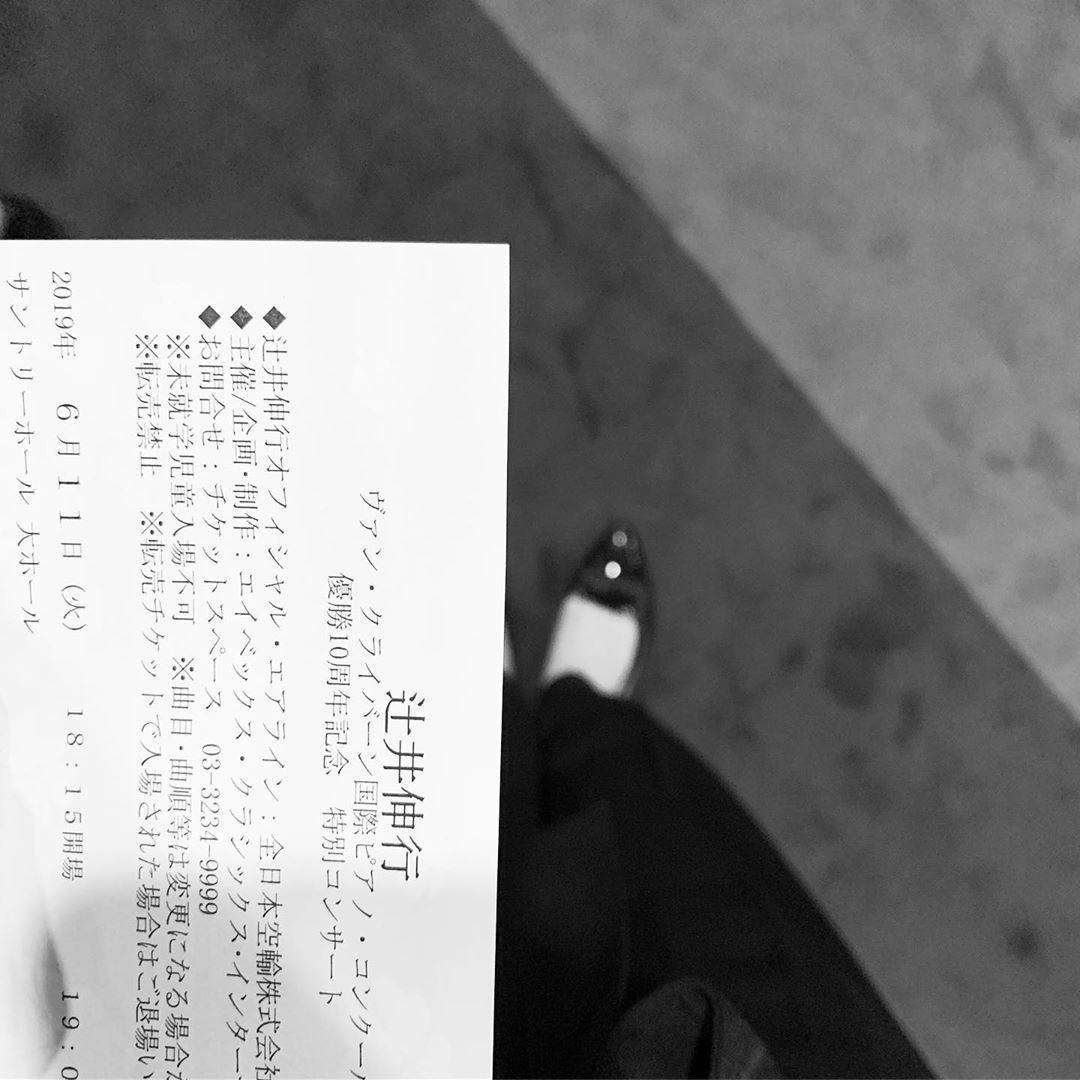 辻井伸行
ヴァン・クライバーン国際ピアノ・コンクール
優勝10周年記念 特別コンサート
◆辻井伸行オフィシャル・エアライン：全日本空輸株式会社
◆主催/企画・制作：エイベックス・クラシックス・インター
◆お問合せ：チケットスペース 03-3234-9999
※未就学児童入場不可 ※曲目・曲順等は変更になる場合が
※転売禁止 ※転売チケットで入場された場合はご退場い
2019年 6月11日（火） 18：15開場 19：0
サントリーホール 大ホール